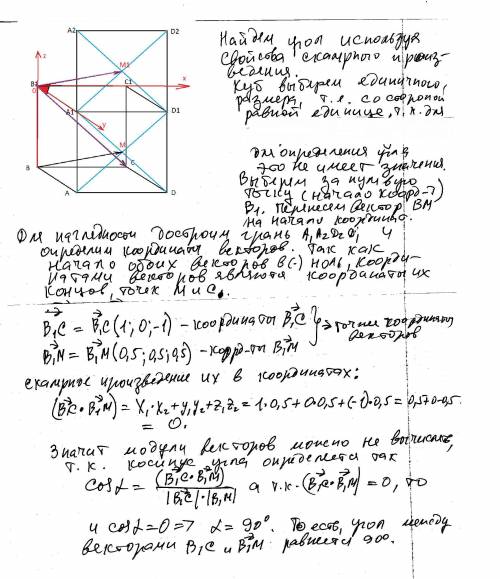 A2
D2
M1
z
B1
C1
x
0
A1
D1
y
M
B
C
A
D
Найдем угол используя
свойства скалярного произ-
ведения.
Куб выберем единичного,
размера, т.е. со стороной
равной единице, т.к. для
для определения угла
это не имеет значения.
Выберем за нулевую
точку (начало коорд-т)
B₁. Перенесем вектор BM
на начало координат.
Для наглядности достроим грань A₁A₂D₂D₁ и
определим координаты векторов. Так как
начало обоих векторов в (·) ноль, коорди-
натами векторов являются координаты их
концов, точек M и C.
B₁C = B₁C (1; 0; -1) - координаты B₁C
B₁M = B₁M (0,5; 0,5; 0,5) - коорд-ты B₁M
} => точные координаты
векторов
скалярное произведение их в координатах:
(B₁C · B₁M) = x₁·x₂ + y₁y₂ + z₁z₂ = 1·0,5 + 0·0,5 + (-1)·0,5 = 0,5+0-0,5
= 0.
Значит модули векторов можно не вычислять,
т.к. косинус угла определяется так
cosα = (B₁C · B₁M) / |B₁C|·|B₁M| а т.к. (B₁C · B₁M) = 0, то
и cosα = 0 => α = 90°. То есть, угол между
векторами B₁C и B₁M равняется 90°.